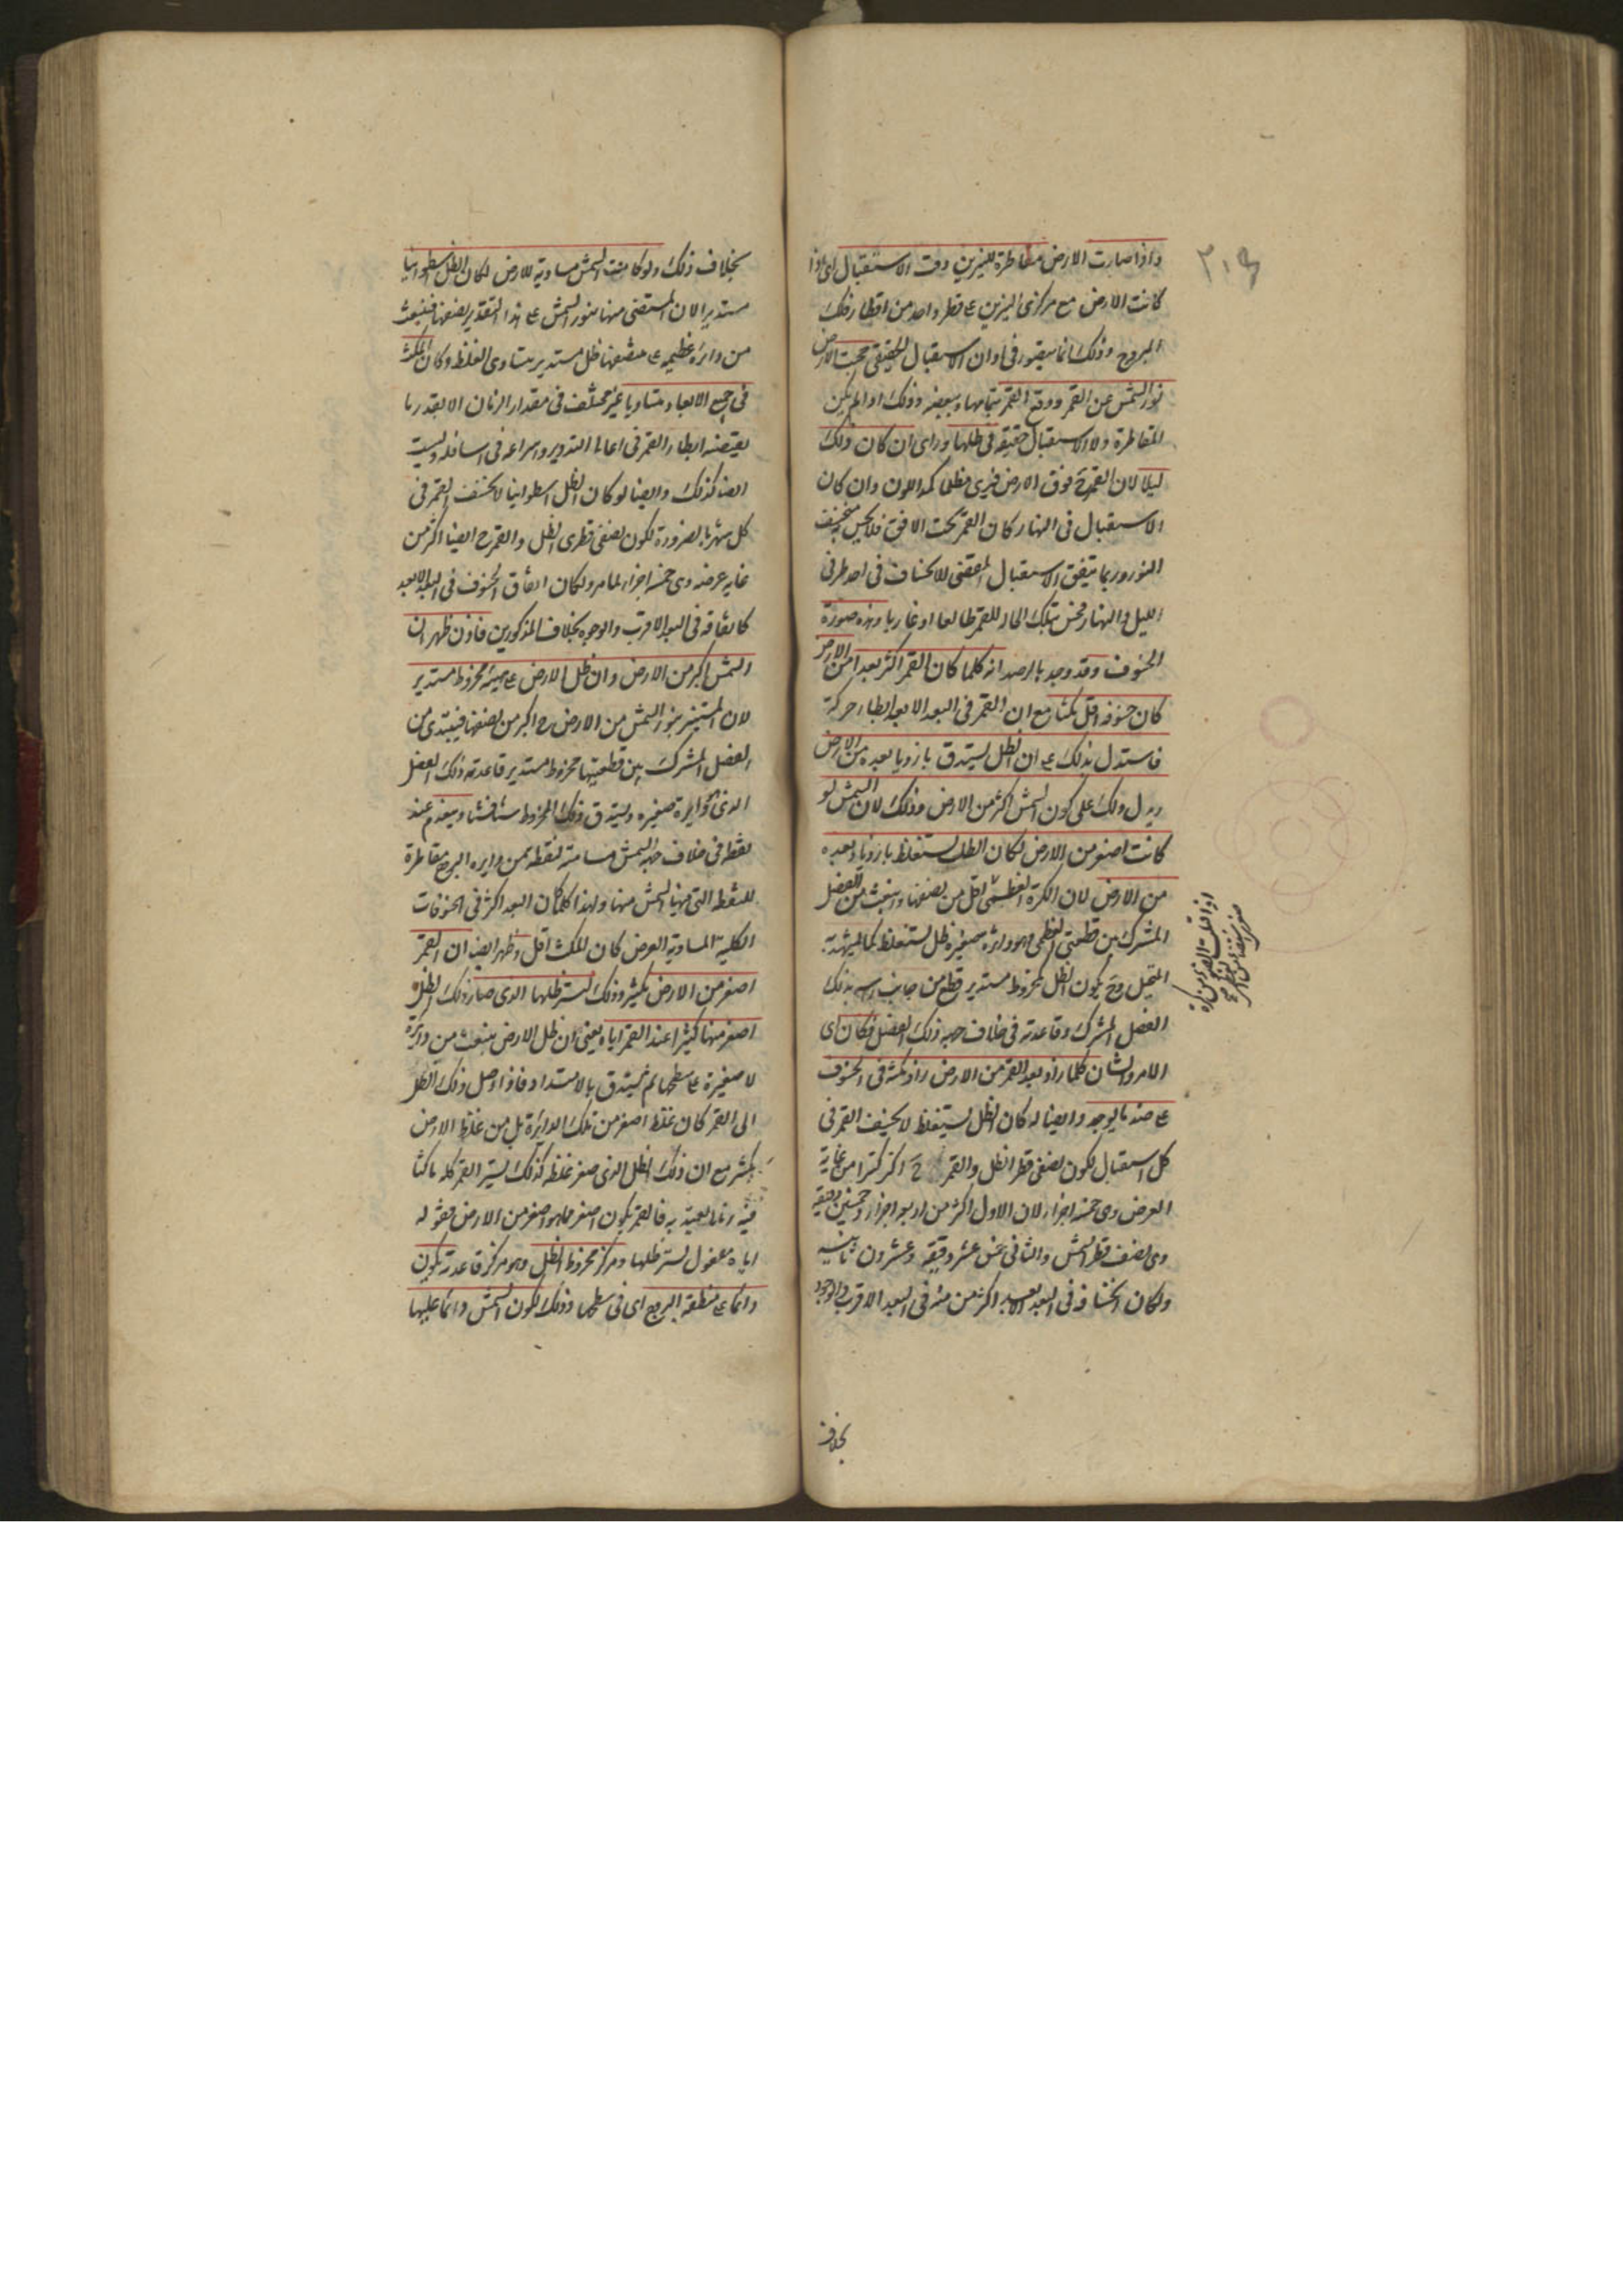 واذا صارت الارض مقاطرة للنيرين وقت الاستقبال اى اذا
كانت الارض مع مركزى النيرين ع قطر واحد من اقطار فلك
البروج وذلك انما يتصور فى اوان الاستقبال الحقيقى حجبت الارض
نور الشمس عن القمر ووقع القمر بتمامها وببعضه وذلك اذا لم يكن
المقاطرة ولا الاستقبال حقيقة فى ظلها وراى ان كان ذلك
ليلا لان القمر ح فوق الارض فيرى مظلما كمد اللون وان كان
الاستقبال فى النهار كان القمر تحت الافق فلا يحس
النور وربما يتفق الاستقبال المقتضى للانخساف فى احد طرفى
الليل والنهار فحس بتلك الحال للقمر طالعا او غاربا وهذه صورة
الخسوف وقد وجد بالرصد انه كلما كان القمر اكثر بعدا من الارض
كان خسوفه اقل مكثا مع ان القمر فى البعد الابعد ابطا حركة
فاستدل بذلك ع ان الظل يستدق بازدياد بعده من الارض
ويدل ذلك على كون الشمس اكبر من الارض وذلك لان الشمس لو
كانت اصغر من الارض لكان الظل يستغلظ بازدياد بعده
من الارض لان الكرة العظمى اقل من نصفها وانبعث من الفصل
المشترك بين قطعتى العظمى وهو دائرة صغيرة ظل يستغلظ كما يشهد به
التخيل وح يكون الظل مخروط مستدير قطع من جانب راسه بذلك
الفصل المشترك وقاعدته فى خلاف جهة ذلك الفصل فكان اى
الامر والشان كلما زاد بعد القمر من الارض زاد مكثه فى الخسوف
ع ضد ما يوجد وايضا لو كان الظل يستغلظ لا يخسف القمر فى
كل استقبال لكون نصفى قطر الظل والقمر ح اكثر كثيرا من غاية
العرض وهى خمسة اجزاء لان الاول اكثر من اربعة اجزاء وخمسين دقيقة
وهى نصف قطر الشمس والثانى خمس عشر دقيقة وعشرون ثانية
ولكان انخسافه فى البعد الابعد اكثر من منه فى البعد الاقرب والوجود
بخلاف
بخلاف ذلك ولو كانت الشمس مساوية للارض لكان الظل اسطوانيا
مستديرا لان المستضى منها بنور الشمس ع هذا التقدير نصفها فينبعث
من دائرة عظيمة ع منتصفها ظل مستدير متساوى الغلظ وكان المكث
فى جميع الابعاد متساويا غير مختلف فى مقدار الزمان الا بقدر ما
يقتضيه ابطاء القمر فى اعالى التدوير واسراعه فى اسافله وليست
ايضا كذلك وايضا لو كان الظل اسطوانيا لانخسف القمر فى
كل شهر بالضرورة لكون نصفى قطرى الظل والقمر ح ايضا اكثر من
غاية عرضه وهى خمسة اجزاء لما مر ولكان اتفاق الخسوف فى البعد الابعد
كاتفاقه فى البعد الاقرب والوجود بخلاف المذكورين فاذن ظهر ان
الشمس اكبر من الارض وان ظل الارض ع هيئة مخروط مستدير
لان المستنير بنور الشمس من الارض ح اكبر من نصفها فيبتدى من
الفصل المشترك بين قطعتيها مخروط مستدير قاعدته ذلك الفصل
الذى هو دايرة صغيره ويستدق ذلك المخروط شيئا فشيئا وينعدم عند
نقطة فى خلاف جهة الشمس مسامتة لنقطة من دايره البروج مقاطرة
للنقطة التى فيها الشمس منها ولهذا كلما كان البعد اكثر فى الخسوفات
الكلية المساوية العرض كان المكث اقل وظهر ايضا ان القمر
اصغر من الارض بكثير وذلك لستر ظلها الذى صار ذلك الظل
اصغر منها كثيرا عند القمر اياه يعنى ان ظل الارض ينبعث من دائرة
لا صغيرة ع سطحها ثم يستدق بالامتداد فاذا وصل ذلك الظل
الى القمر كان غلظه اصغر من تلك الدائرة بل من غلظ الارض
بكثير مع ان ذلك الظل الذى صغر غلظه كذلك يستر القمر كله ماكثا
فيه زمانا يعتد به فالقمر يكون اصغر مما هو اصغر من الارض فقوله
اياه مفعول لستر ظلها ومركز مخروط الظل وهو مركز قاعدته يكون
دائما ع منطقة البروج اى فى سطحها وذلك لكون الشمس دائما عليها